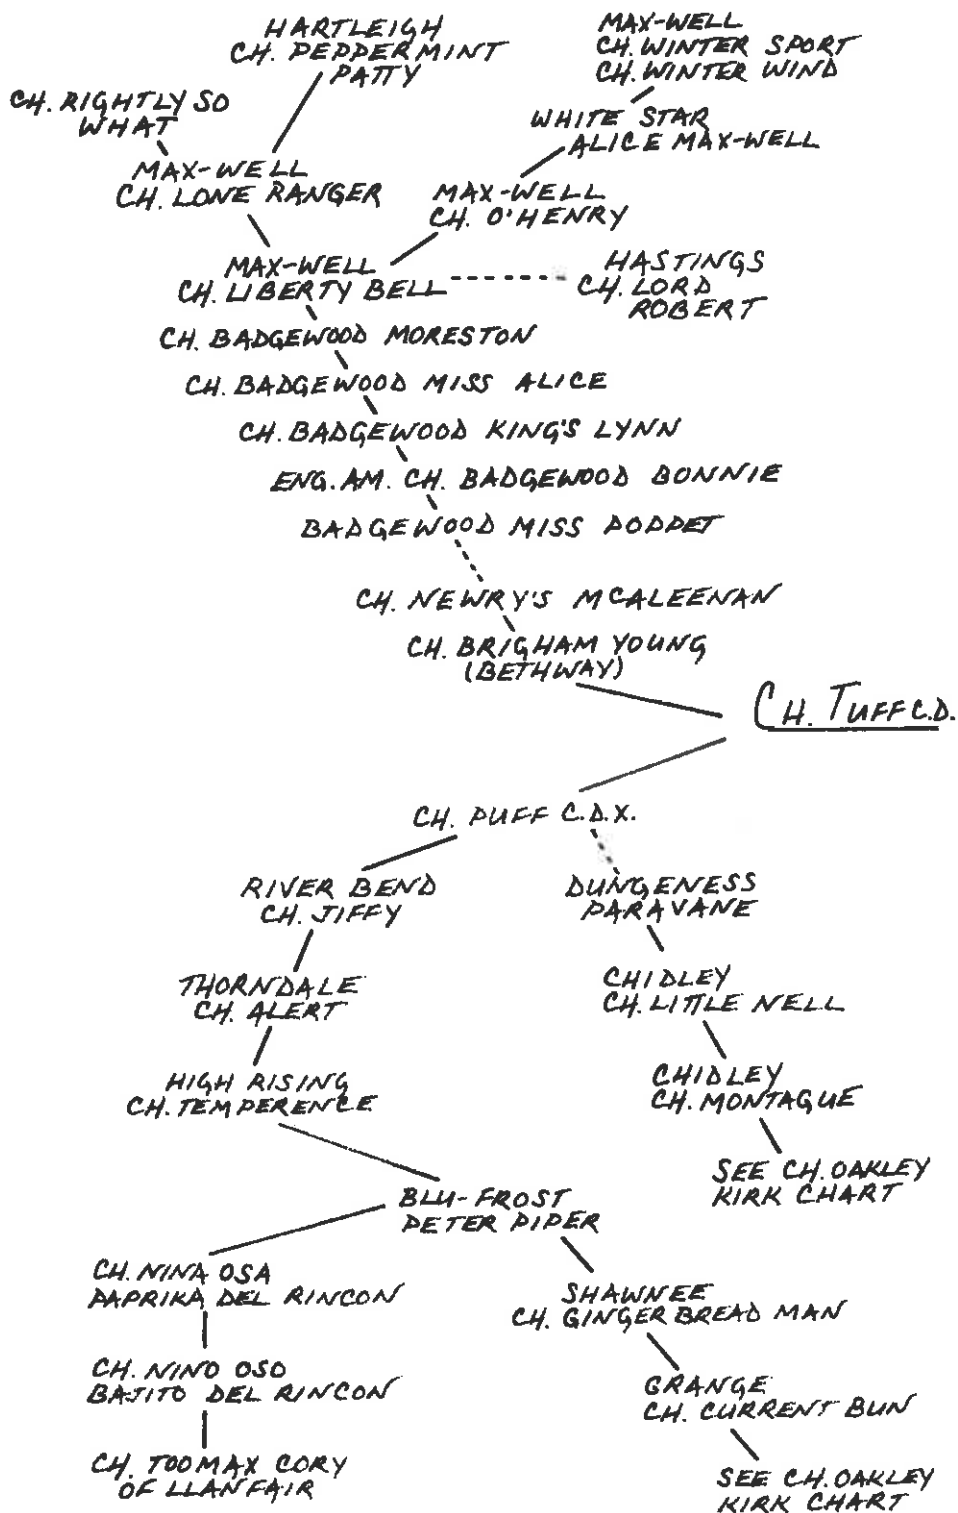 HARTLEIGH
CH. PEPPERMINT
PATTY
MAX-WELL
CH. WINTER SPORT
CH. WINTER WIND
CH. RIGHTLY SO
WHAT
WHITE STAR
ALICE MAX-WELL
MAX-WELL
CH. LONE RANGER
MAX-WELL
CH. O'HENRY
MAX-WELL
CH. LIBERTY BELL
HASTINGS
CH. LORD
ROBERT
CH. BADGEWOOD MORESTON
CH. BADGEWOOD MISS ALICE
CH. BADGEWOOD KING'S LYNN
ENG. AM. CH. BADGEWOOD BONNIE
BADGEWOOD MISS POPPET
CH. NEWRY'S MCALEENAN
CH. BRIGHAM YOUNG
(BETHWAY)
CH. TUFF C.D.
CH. PUFF C.D.X.
RIVER BEND
CH. JIFFY
DUNGENESS
PARAVANE
THORNDALE
CH. ALERT
CHIDLEY
CH. LITTLE NELL
HIGH RISING
CH. TEMPERENCE
CHIDLEY
CH. MONTAGUE
SEE CH. OAKLEY
KIRK CHART
BLU-FROST
PETER PIPER
CH. NINA OSA
PAPRIKA DEL RINCON
SHAWNEE
CH. GINGER BREAD MAN
CH. NINO OSO
BAJITO DEL RINCON
GRANGE
CH. CURRENT BUN
CH. TOOMAX CORY
OF LLANFAIR
SEE CH. OAKLEY
KIRK CHART